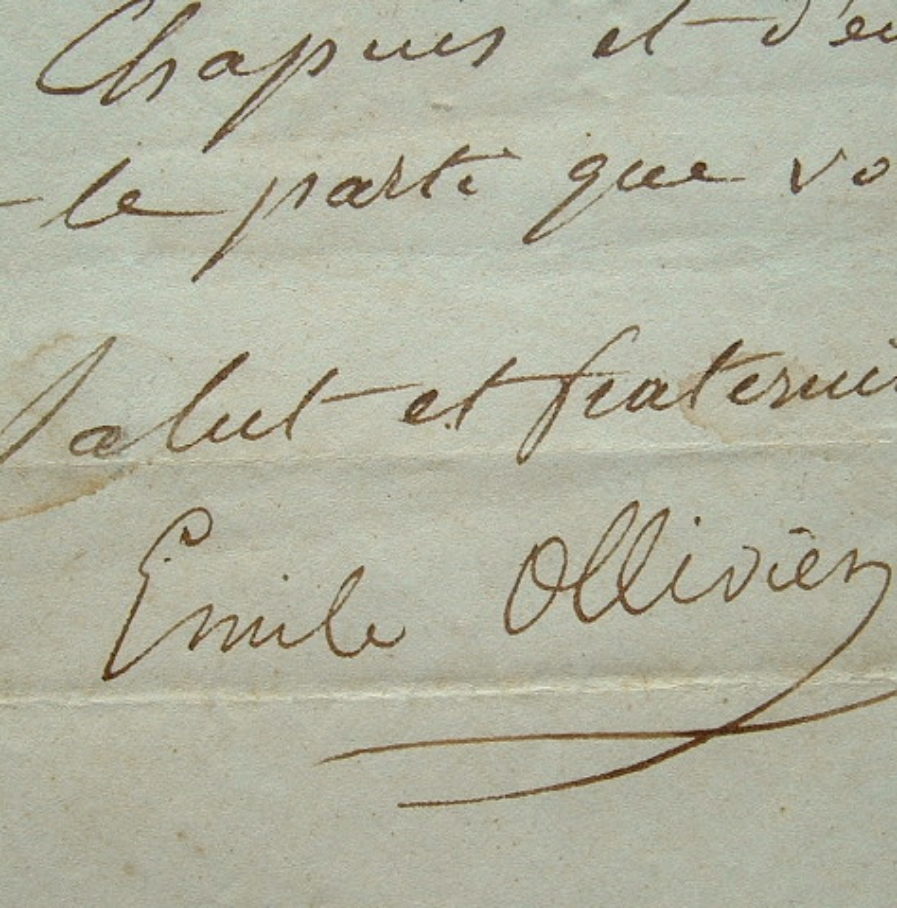 Chapuis et d'en
le parti que vo
Salut et fraterni
Emile Ollivier